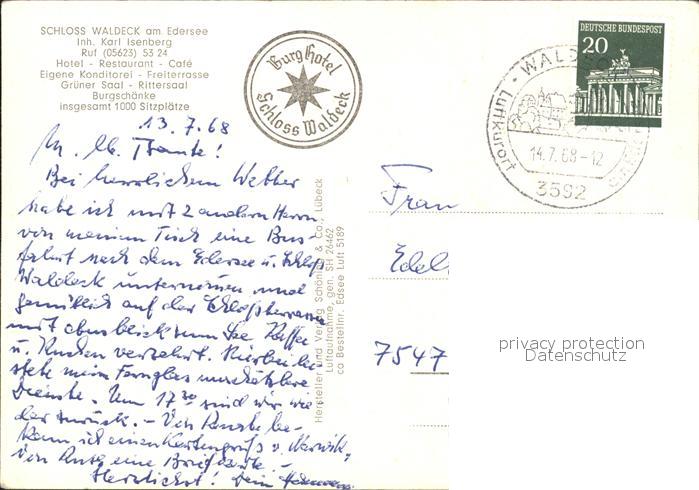 SCHLOSS WALDECK am Edersee
Inh. Karl Isenberg
Ruf (05623) 53 24
Hotel - Restaurant - Café
Eigene Konditorei - Freiterrasse
Grüner Saal - Rittersaal
Burgschänke
insgesamt 1000 Sitzplätze
Burghotel
Schloss Waldeck
DEUTSCHE BUNDESPOST
20
WALDECK
Luftkurort
14.7.68-12
3592
13.7.68
M. lb. Tante!
Bei herrlichem Wetter
habe ich mit 2 andern Herrn
von meinem Tisch eine Bus-
fahrt nach dem Edersee u. Schloß
Waldeck unternommen und
gemütlich auf der Schloßterrasse
mit zum See Kaffee
u. Kuchen verzehrt. Hierbei lei-
stete mein Fernglas unschätzbare
Dienste. Um 17 30 sind wir wie
der zurück. - Von be-
kam ich einen Kartengruß v.
von eine
Herzlichst! Dein
Hersteller und Verlag Schöning & Co., Lübeck
Luftaufnahme, gen. SH 26462
ca Bestellnr. Edsee Luft 5189
Frau
Edel
7547
privacy protection
Datenschutz